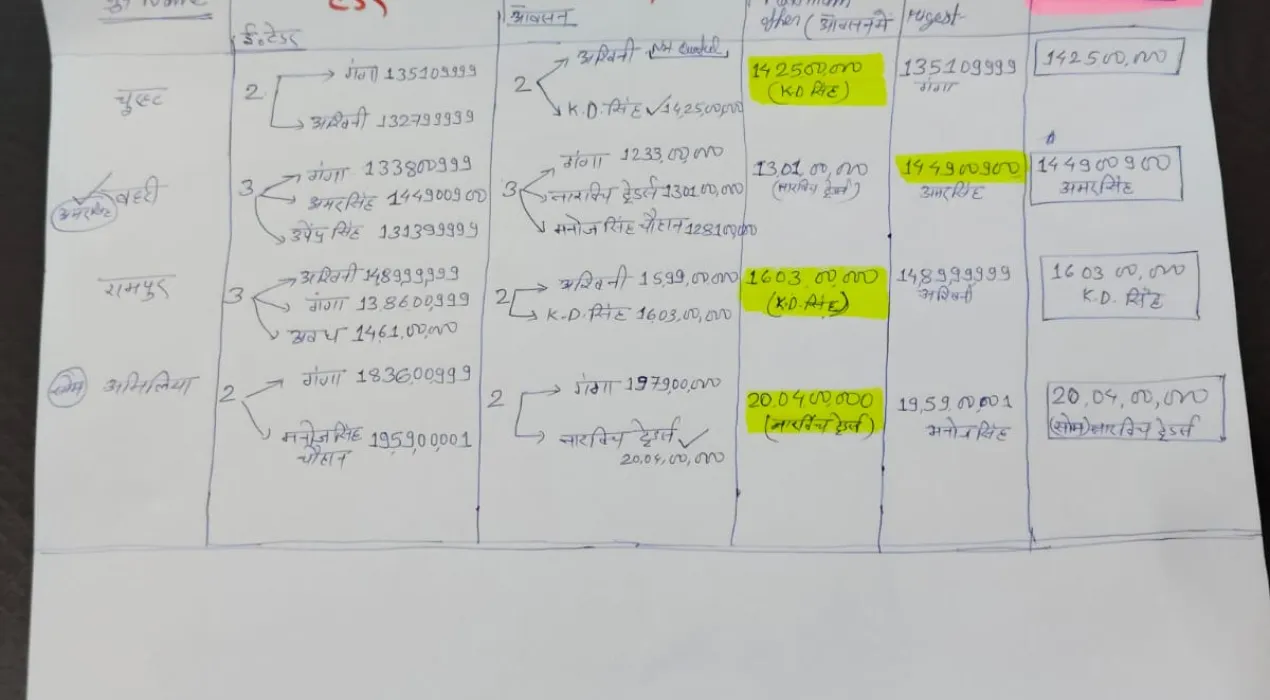 ई.टेंडर
ऑक्सन
offer (ऑक्सनमें
चुरहट
2
गंगा 135109999
अश्विनी 132799999
2
अश्विनी
K.D. सिंह ✓ 14,25,00,000
142500,000
(K.D सिंह)
135109999
गंगा
142500,000
बहरी
अमरसिंह
3
गंगा 133800999
अमरसिंह 144900900
उपेंद्र सिंह 131399999
3
गंगा 1233,00,000
नारविच ट्रेडर्स 130100,000
मनोज सिंह चौहान 12810,000
13,01,00,000
(नारविच ट्रेडर्स)
144900900
अमरसिंह
144900900
अमरसिंह
रामपुर
3
अश्विनी 148,999,999
गंगा 13,8600,999
अवध 1461,00,000
2
अश्विनी 1599,00,000
K.D. सिंह 1603,00,000
1603,00,000
(K.D. सिंह)
148,999999
अश्विनी
1603 00,000
K.D. सिंह
अमिलिया
2
गंगा 183600,999
मनोज सिंह 195900001
चौहान
2
गंगा 197900,000
नारविच ट्रेडर्स ✓
20,04,00,000
20.0400,000
(नारविच ट्रेडर्स)
19,59,00,001
मनोज सिंह
20,04,00,000
(सोम) नारविच ट्रेडर्स